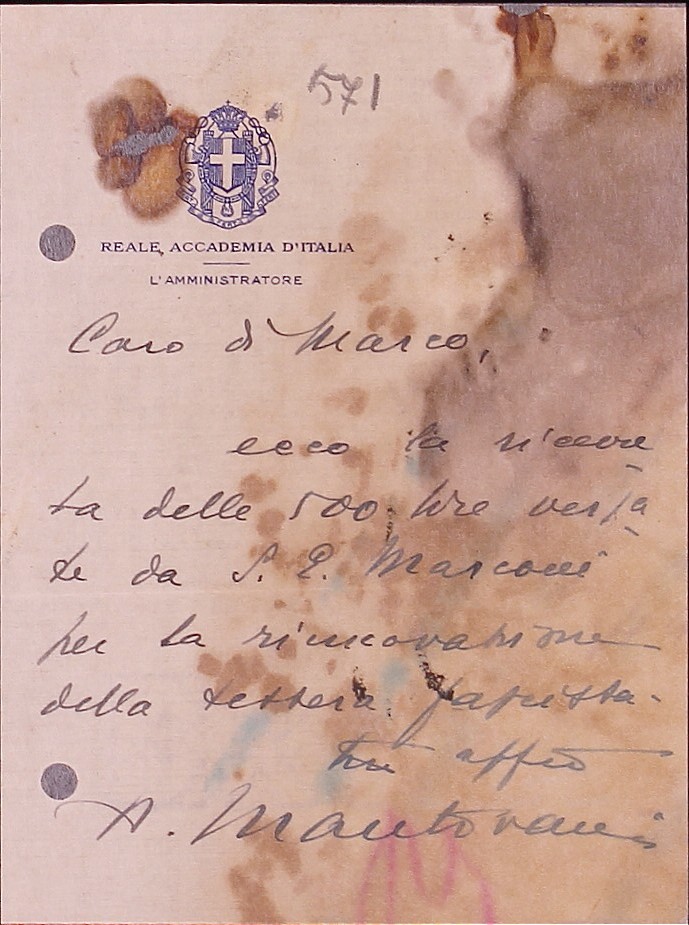 571
REALE ACCADEMIA D'ITALIA
L'AMMINISTRATORE
Caro di Marco,
ecco la ricevu
ta delle 500 lire versa
te da S. E. Marconi
per la rinnovazione
della tessera fascista.
tuo affto
A. Mantovani